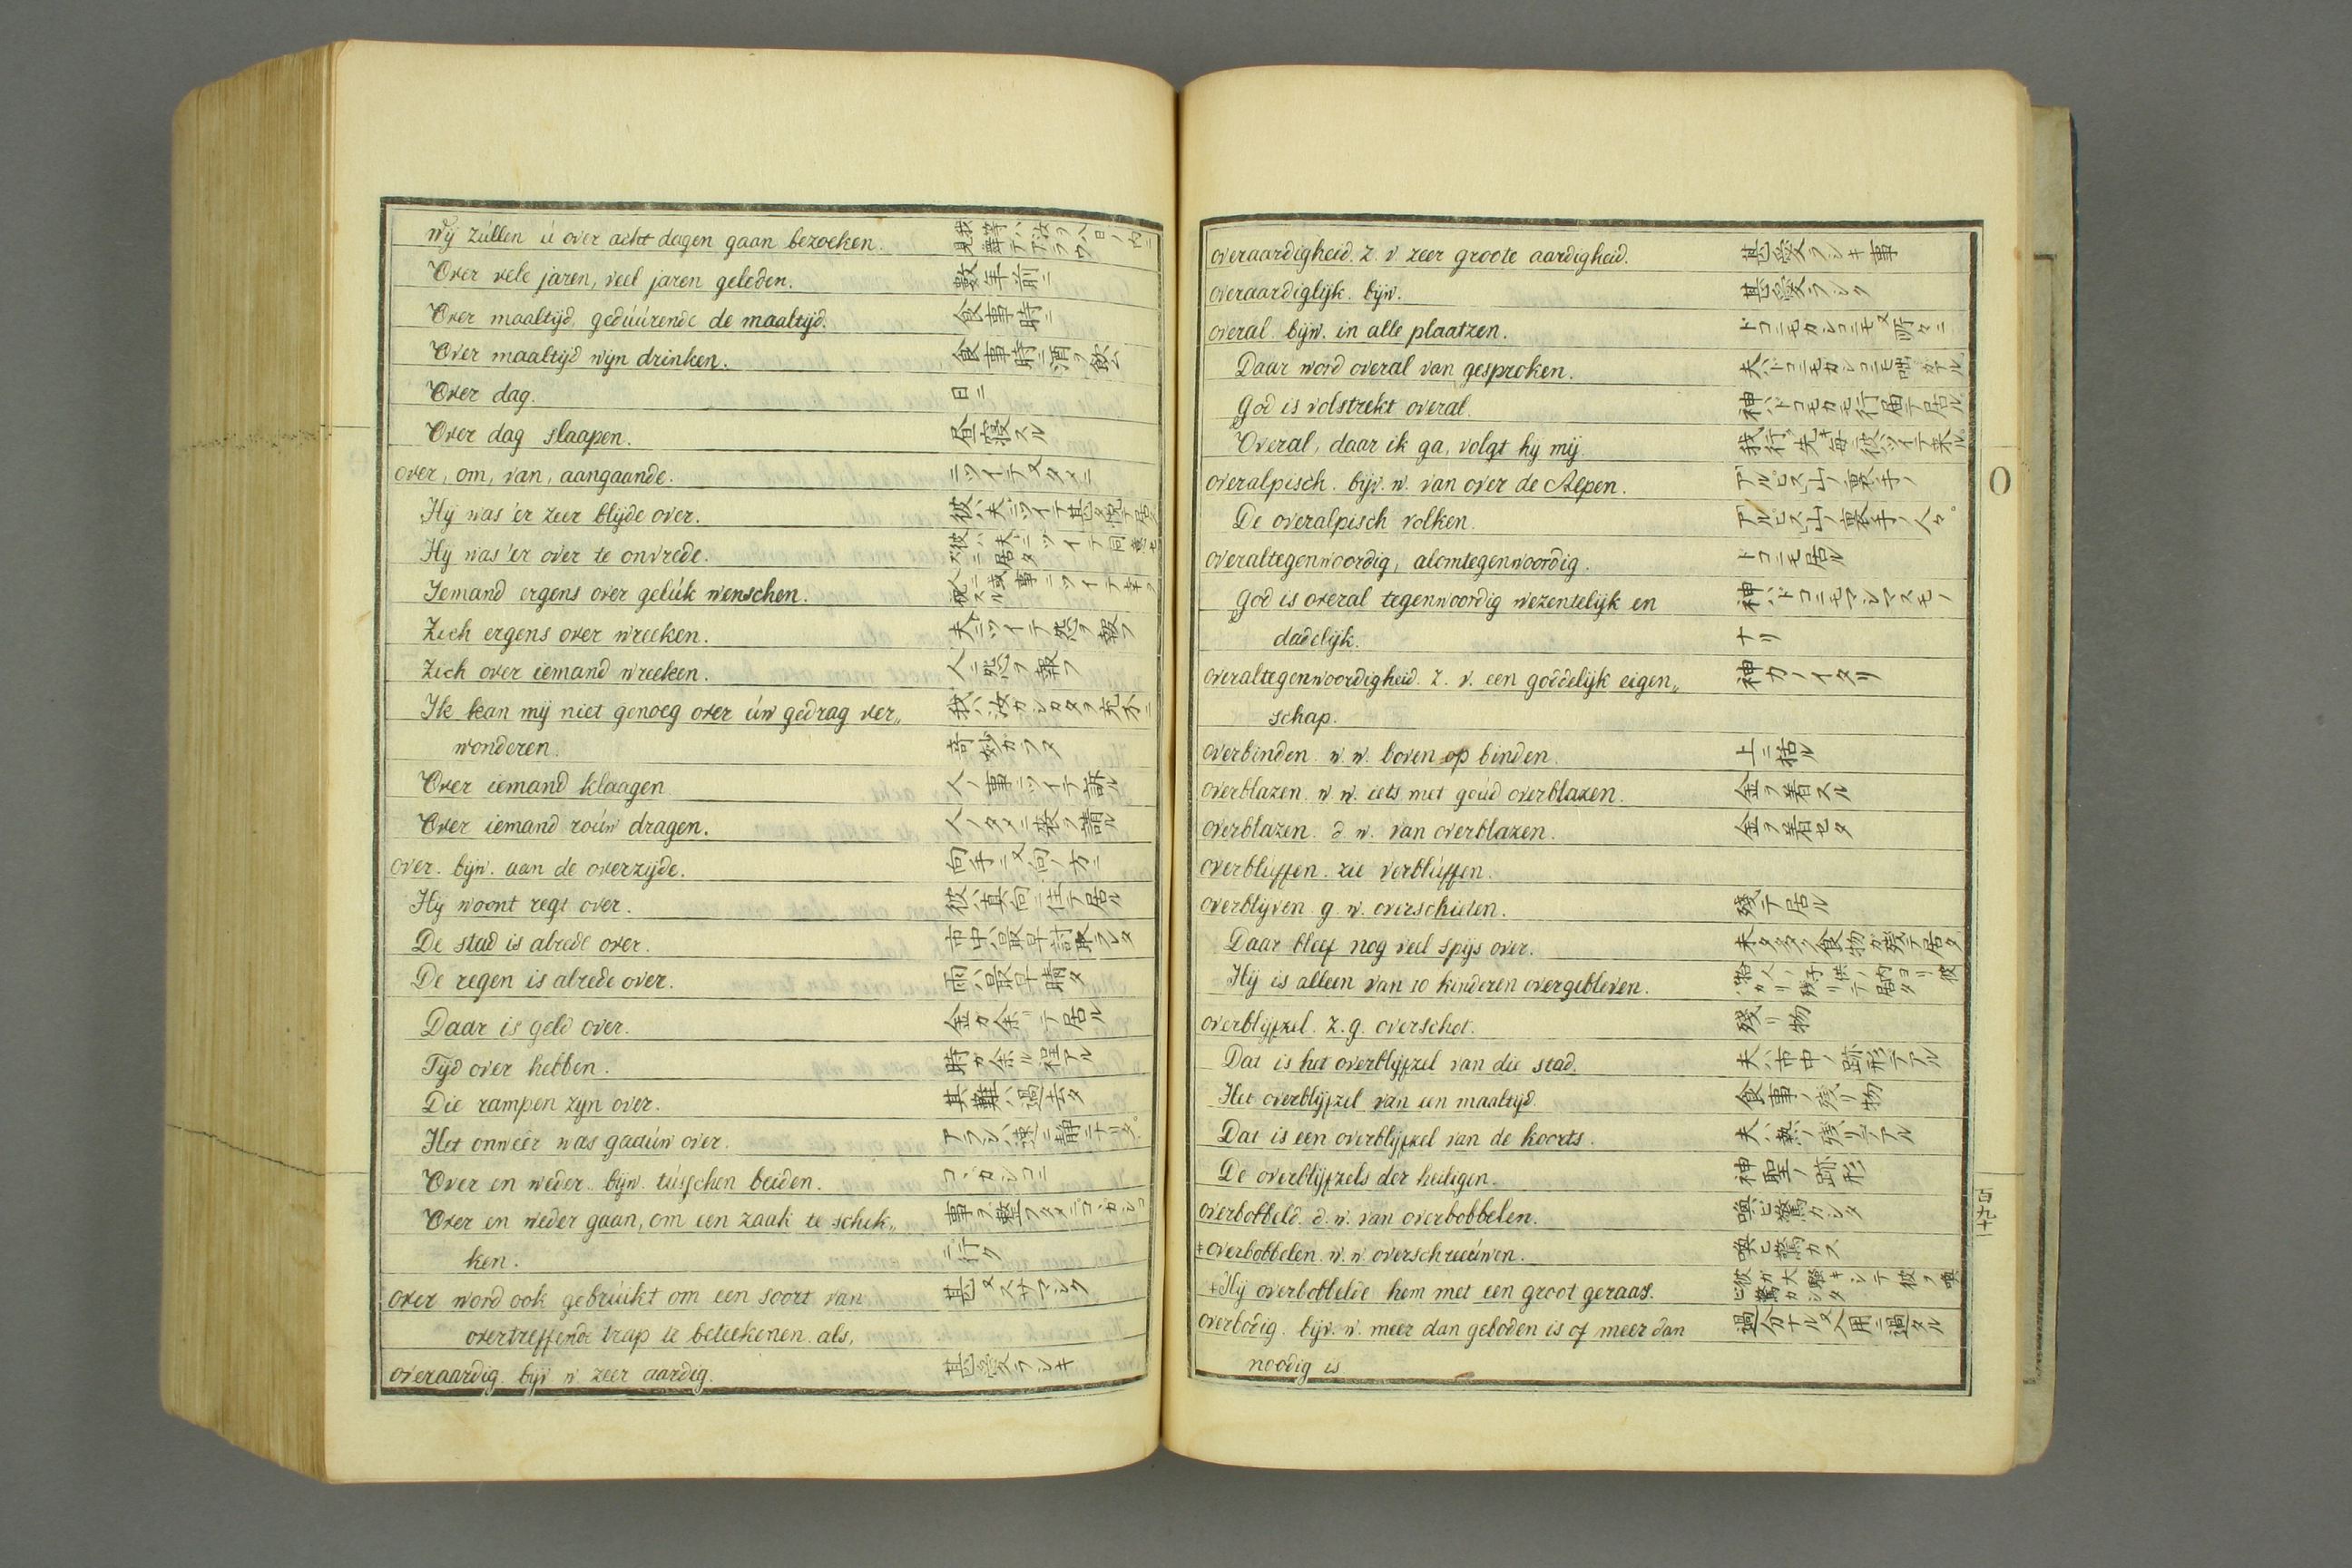 Wij zúllen ú over acht dagen gaan bezoeken. 我等ハ汝ヲ八日ノ内ニ見舞テアラウ
Over vele jaren, veel jaren geleden. 數年前ニ
Over maaltijd, gedúúrende de maaltijd. 食事時ニ
Over maaltijd wijn drinken. 食事時ニ酒ヲ飲ム
Over dag. 日ニ
Over dag slaapen. 昼寝スル
over, om, van, aangaande. ニツイテ又タメニ
Hij was 'er zeer blijde over. 彼ハ夫ニツイテ甚タ悦テ居タ
Hij was 'er over te onvrede. 彼ハ夫ニツイテ
Iemand ergens over gelúk wenschen. 人ニ或事ニツイテ幸ヲ祝スル
Zich ergens over wreeken. 夫ニツイテ怨ヲ報フ
Zich over iemand wreeken. 人ニ怨ヲ報フ
Ik kan mij niet genoeg over úw gedrag ver„ 我ハ汝カシカタヲ充分ニ
wonderen. 奇妙カラヌ
Over iemand klaagen 人ノ事ニツイテ訴ル
Over iemand roúw dragen. 人ノタメニ喪ヲ
over. bijw. aan de overzijde. 向手ニ又向ノ方ニ
Hij woont regt over. 彼ハ真向ニ住テ居ル
De stad is alrede over. 市中ハ最早討取ラレタ
De regen is alrede over. 雨ハ最早晴タ
Daar is geld over. 金カ余リテ居ル
Tijd over hebben. 時カ余ル程アル
Die rampen zyn over. 其難ハ過去タ
Het onwéér was gaaúw over. アラシハ速ニ静ニナリタ
Over en weder. bijw. tússchen beiden. コヽカシコニ
Over en weder gaan, om een zaak te schik„ 事ヲ整フタメニコヽカシコ
ken. ニ行ク
over word ook gebrúikt om een soort van 甚又スサマシク
overtreffende trap te beteekenen. als,
overaardig. bijv w zeer aardig. 甚愛ラシキ
overaardigheid. z. v zeer groote aardigheid. 甚愛ラシキ事
overaardiglijk. bijw. 甚愛ラシク
overal. bijw. in alle plaatzen. ドコニモカシコニモ又所々ニ
Daar word overal van gesproken. 夫ハドコニモカシコニモ
God is volstrekt overal. 神ハドコモカモ行届テ居ル
Overal, daar ik ga, volgt hy mij. 我行ク先キ毎ニ彼ツイテ来ル
overalpisch. bijv. w. van over de Alpen. アルピス山ノ裏手ノ
De overalpisch volken. アルピス山ノ裏手ノ人々
overaltegenwoordig, alomtegenwoordig. ドコニモ居ル
God is overal tegenwoordig wezentelijk en 神ハドコニモマシマスモノ
dadelijk. ナリ
overaltegenwoordigheid. z. v. een goddelijk eigen„ 神力ノイタリ
schap.
overbinden. w. w. boven op binden. 上ニ括ル
overblazen. w. w. iets met goúd overblazen. 金ヲ着スル
overblazen. d. w. van overblazen. 金ヲ着セタ
overblúffen. zie verblúffen.
overblijven. g. w. overschieten. 殘テ居ル
Daar bleef nog veel spijs over. 未タ食物カ殘テ居タ
Hij is alleen van 10 kinderen overgebleven. 拾人ノ子供ノ内ヨリ彼カリ殘リテ居タ
overblijfzel. z. g. overschot. 殘リ物
Dat is het overblijfzel van die stad. 夫ハ市中ノ跡形テアル
Het overblijfzel van een maaltyd. 食事ノ残リ物
Dat is een overblijfzel van de koorts. 夫ハ熱ノ残リテアル
De overblijfzels der heiligen. 神聖ノ跡形
overbobbeld. d. w. van overbobbelen. 喚ヒ驚カシタ
+overbobbelen. w. w. overschreeúwen. 喚ヒ驚カス
+Hij overbobbelde hem met een groot geraas. 彼カ大騒キシテ彼ヲ喚ヒ驚カシタ
overbodig. bijv. w. meer dan geboden is of meer dan 過分ナル又入用ニ過タル
noodig is
O